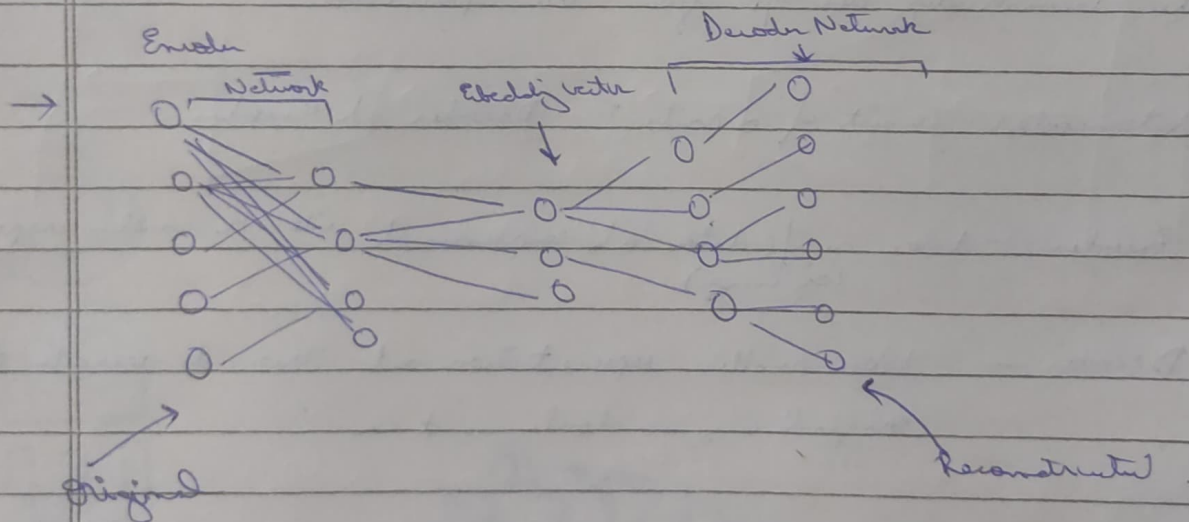 Encoder
Network
Ebeddig vector
Decoder Network
Original
Reconstructed